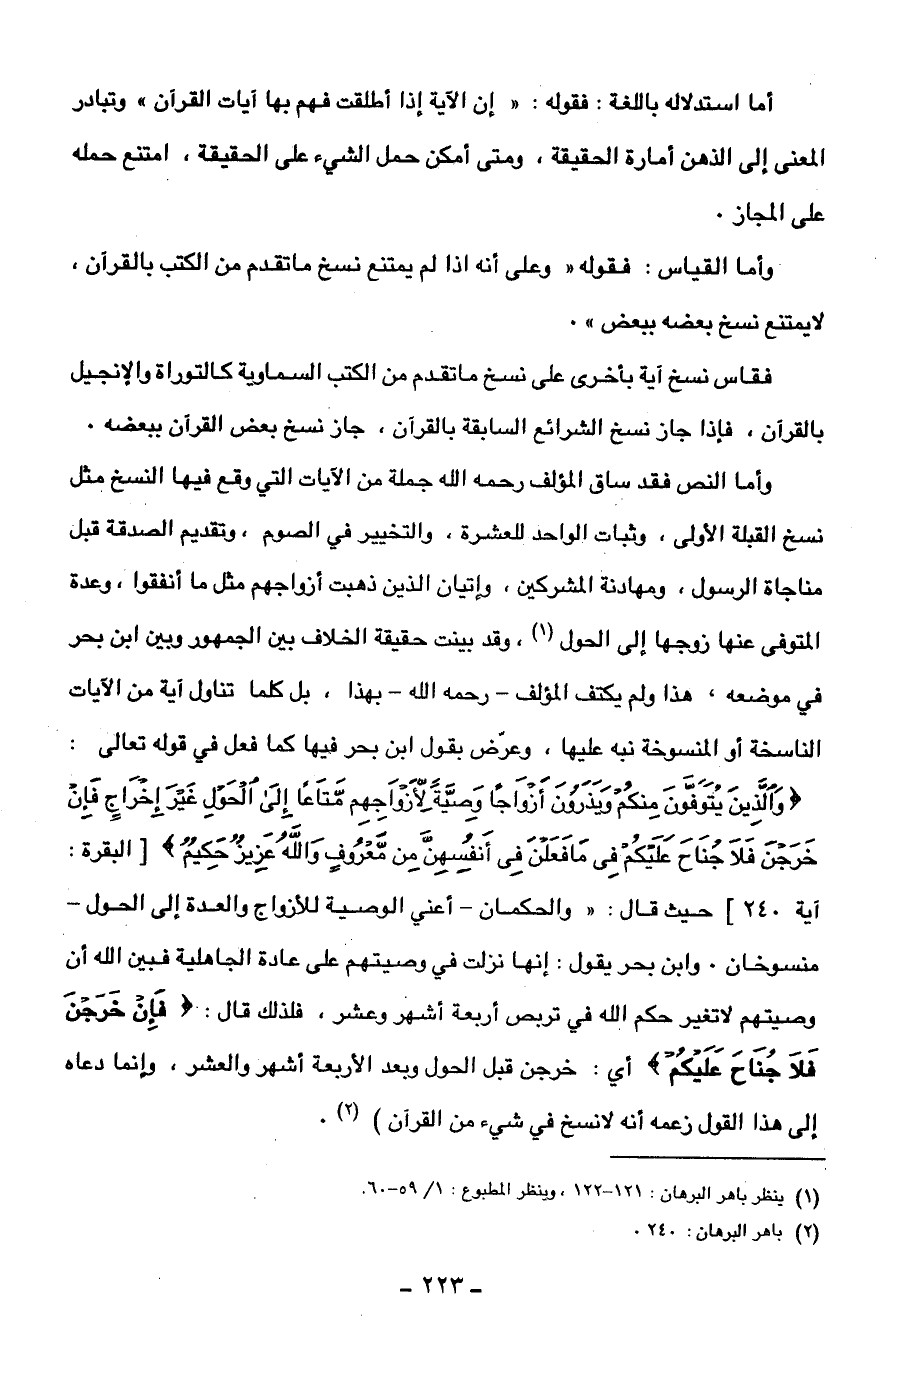 أما استدلاله باللغة : فقوله : « إن الآية إذا أطلقت فهم بها آيات القرآن » وتبادر
المعنى إلى الذهن أمارة الحقيقة ، ومتى أمكن حمل الشيء على الحقيقة ، امتنع حمله
على المجاز .
وأما القياس : فقوله « وعلى أنه اذا لم يمتنع نسخ ماتقدم من الكتب بالقرآن ،
لايمتنع نسخ بعضه ببعض » .
فقاس نسخ آية بأخرى على نسخ ماتقدم من الكتب السماوية كالتوراة والإنجيل
بالقرآن ، فإذا جاز نسخ الشرائع السابقة بالقرآن ، جاز نسخ بعض القرآن ببعضه .
وأما النص فقد ساق المؤلف رحمه الله جملة من الآيات التي وقع فيها النسخ مثل
نسخ القبلة الأولى ، وثبات الواحد للعشرة ، والتخيير في الصوم ، وتقديم الصدقة قبل
مناجاة الرسول ، ومهادنة المشركين ، وإتيان الذين ذهبت أزواجهم مثل ما أنفقوا ، وعدة
المتوفى عنها زوجها إلى الحول (١) ، وقد بينت حقيقة الخلاف بين الجمهور وبين ابن بحر
في موضعه ، هذا ولم يكتف المؤلف - رحمه الله - بهذا ، بل كلما تناول آية من الآيات
الناسخة أو المنسوخة نبه عليها ، وعرّض بقول ابن بحر فيها كما فعل في قوله تعالى :
﴿ وَالَّذِينَ يُتَوَفَّوْنَ مِنكُمْ وَيَذَرُونَ أَزْوَاجًا وَصِيَّةً لِّأَزْوَاجِهِم مَّتَاعًا إِلَى الْحَوْلِ غَيْرَ إِخْرَاجٍ فَإِنْ
خَرَجْنَ فَلَا جُنَاحَ عَلَيْكُمْ فِي مَا فَعَلْنَ فِي أَنفُسِهِنَّ مِن مَّعْرُوفٍ وَاللَّهُ عَزِيزٌ حَكِيمٌ ﴾ [ البقرة :
آية ٢٤٠ ] حيث قال : « والحكمان - أعني الوصية للأزواج والعدة إلى الحول -
منسوخان . وابن بحر يقول : إنها نزلت في وصيتهم على عادة الجاهلية فبين الله أن
وصيتهم لاتغير حكم الله في تربص أربعة أشهر وعشر ، فلذلك قال : ﴿ فَإِنْ خَرَجْنَ
فَلَا جُنَاحَ عَلَيْكُمْ ﴾ أي : خرجن قبل الحول وبعد الأربعة أشهر والعشر ، وإنما دعاه
إلى هذا القول زعمه أنه لانسخ في شيء من القرآن ) (٢) .
(١) ينظر باهر البرهان : ١٢١-١٢٢ ، وينظر المطبوع : ١/ ٥٩-٦٠.
(٢) باهر البرهان : ٢٤٠ .
- ٢٢٣ -